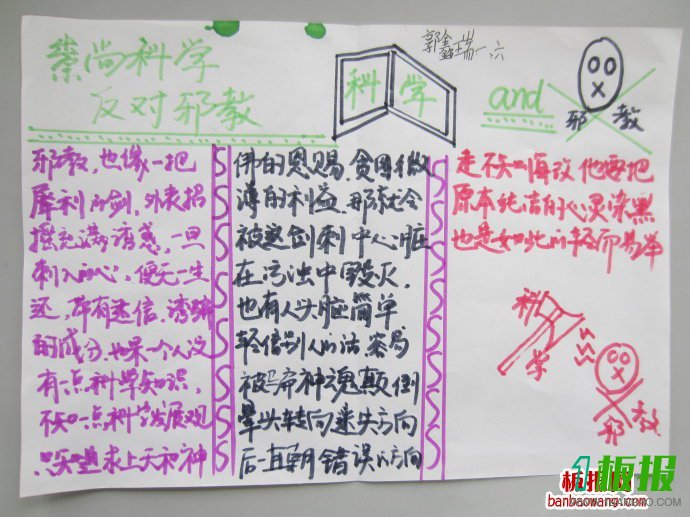 崇尚科学
反对邪教
科学
and
郭鑫瑞一六
邪教
邪教,也像一把
犀利的剑,外表招
摇充满诱惑,一旦
刺入心,便无一生
还,带有迷信、诱骗
的成分,如果一个人没
有一点科学知识,
不知一点科学发展观
只知道求上天和神
佛的恩赐,贪图微
薄的利益,那就会
被这剑刺中心脏
在污浊中毁灭,
也有人头脑简单
轻信别人的话,容易
被骗神魂颠倒
晕头转向迷失方向
后一直朝错误的方向
走不知悔改他要把
原本纯洁的心灵染黑
也是如此的轻而易举
科学
邪教
板报
banbaowang.com